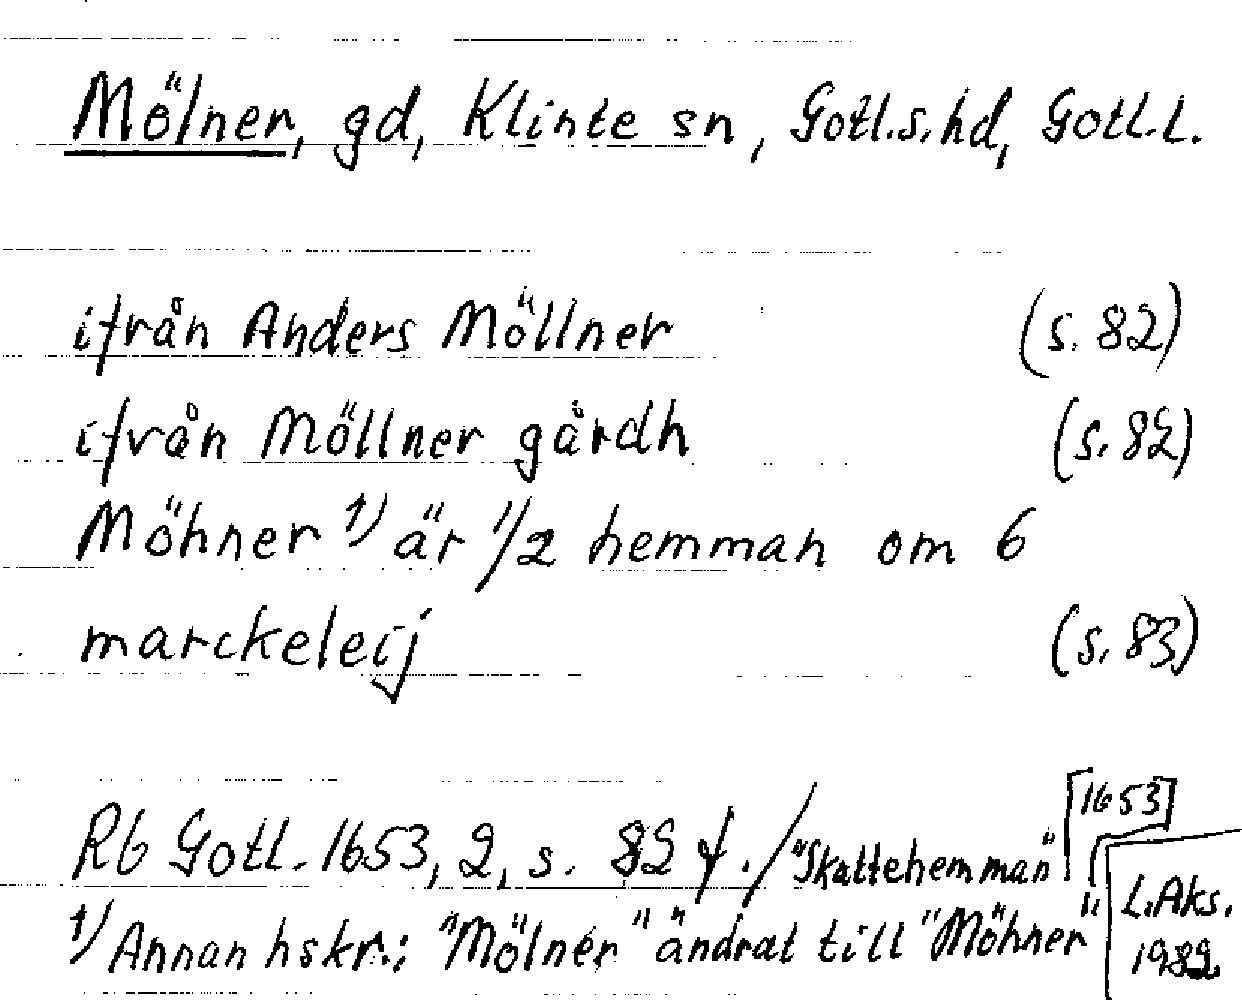 Mölner, gd, Klinte sn, Gotl.s.hd, Gotl.l.
ifrån Anders Möllner (s. 82)
ifrån Möllner gårdh (s. 82)
Möhner 1) är 1/2 hemman om 6
marckeleij (s. 83)
[1653]
Rb Gotl. 1653, 2, s. 82 f. / "Skattehemman"
1) Annan hskr.: "Mölner" ändrat till "Möhner"
L.Aks.
1982